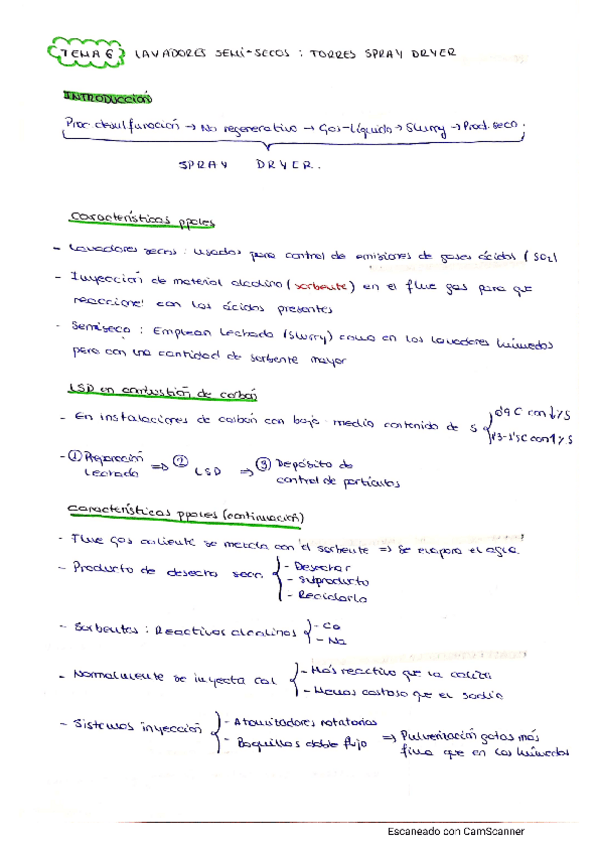 TEMA 6 LAVADORES SEMI-SECOS : TORRES SPRAY DRYER
INTRODUCCIÓN
Proc. desulfuración → No regenerativo → Gas-líquido → Slurry → Prod. seco.
SPRAY DRYER.
Características ppales
- Lavadores secos : usados para control de emisiones de gases ácidos (SO2)
- Inyección de material alcalino (sorbente) en el flue gas para que
reaccione con los ácidos presentes
- Semiseco : Emplean lechada (Slurry) como en los lavadores húmedos
pero con una cantidad de sorbente mayor
LSD en combustión de carbón
- En instalaciones de carbón con bajo-medio contenido de S
0'9 C con ↓% S
1'3-1'5C con ↑% S
- ① Preparación Lechada ⇒ ② LSD ⇒ ③ Depósito de
control de partículas
Características ppales (continuación)
- Flue gas caliente se mezcla con el sorbente ⇒ Se evapora el agua.
- Producto de desecho seco
- Desechar
- Subproducto
- Reciclarlo
- Sorbentes : Reactivos alcalinos
- Ca
- Na
- Normalmente se inyecta cal
- Más reactivo que la caliza
- Menos costoso que el sodio
- Sistemas inyección
- Atomizadores rotatorios
- Boquillas doble flujo ⇒ Pulverización gotas más
fina que en los húmedos
Escaneado con CamScanner